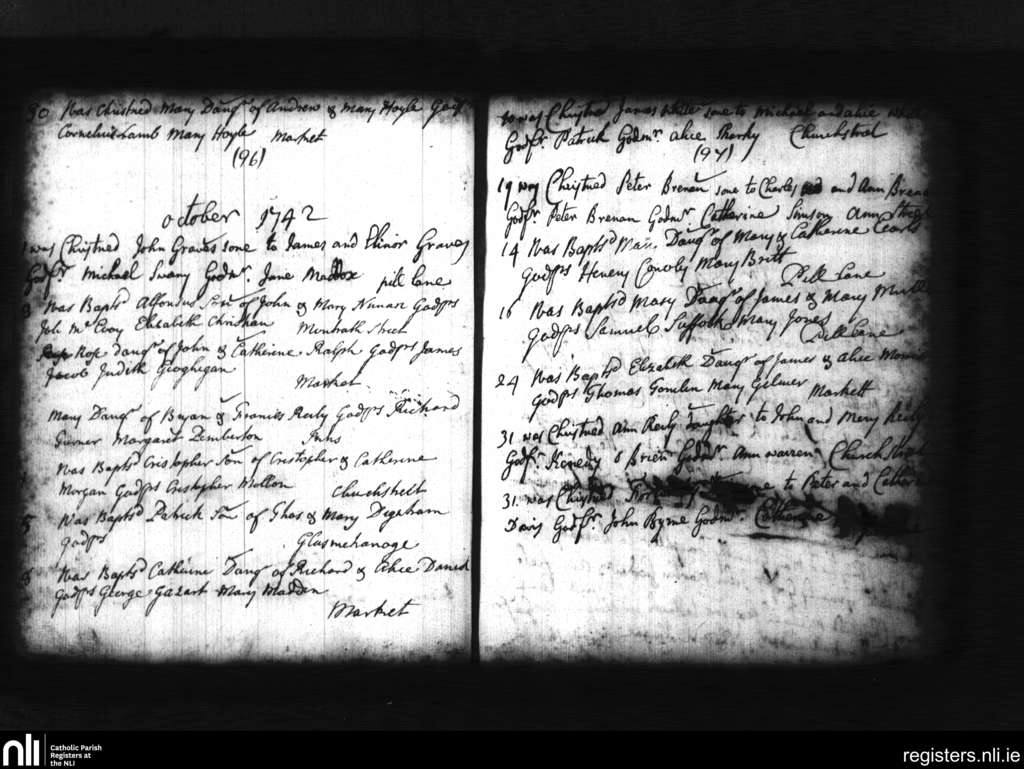 30 Was Christned Mary Daugr of Andrew & Mary Hoyle Godfs
Cornelius Lamb Mary Hoyle Market
(96)
October 1742
1 was Christned John Graves sone to James and Elinor Graves
Godfr Michael Swany Godmr Jane Maddox pill lane
3 Was Baptd Alfonsus Son of John & Mary Nunan Godfs
Mc Cooy Elizabeth Chrisham Street
Rose Daugr of John & Catherine Ralph Godfs James
Jacob Judith Geoghegan
Market
Mary Daugr of Bryan & Frances Reily Godfs Richard
Turner Margaret Pemberton Inns
Was Baptd Cristopher Son of Cristopher & Catherine
Morgan Godfs Cristopher Mollon Chuchstreet
5 Was Baptd Patrick Son of Thos & Mary Dignham
Godfs
Glasmehanoge
6 Was Baptd Catherine Daugr of Richard & Alice Daniel
Godfs George Gazart Mary Madden
Market
was Christned James White sone to Michael and alice White
Godfr Patrick Godmr alice Sharky Churchstreet
(97)
19 was Christned Peter Brenan sone to Charles and Ann Brenan
Godfr Peter Brenan Godmr Catherine Simson Ann Street
14 Was Baptsd Mary Daugr of & Catherine
Godfs Henery Conoly Mary Britt
Pill Lane
16 Was Baptsd Mary Daugr of James & Mary
Godfs Samuel Suffolk Mary Jones
Pill Lane
24 Was Baptsd Elizabeth Daugr of James & Alice
Godfs Thomas Tomlin Mary Gilmer Markett
31 was Christned Ann Reily Daughter to John and Mery Reily
Godfr Kenedy o Brien Godmr Ann warren Church Street
31 was Christned to Peter and Catherine
Davis Godfr John Byrne Godmr Catherine
nli
Catholic Parish
Registers at
the NLI
registers.nli.ie